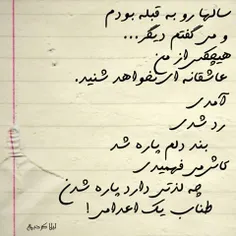 سالها رو به قبله بودم
و می گفتم دیگر...
هیچکس از من
عاشقانه ای نخواهد شنید.
آمدی
رد شدی
بند دلم پاره شد
کاش می فهمیدی
چه لذتی دارد پاره شدن
طناب یک اعدامی!